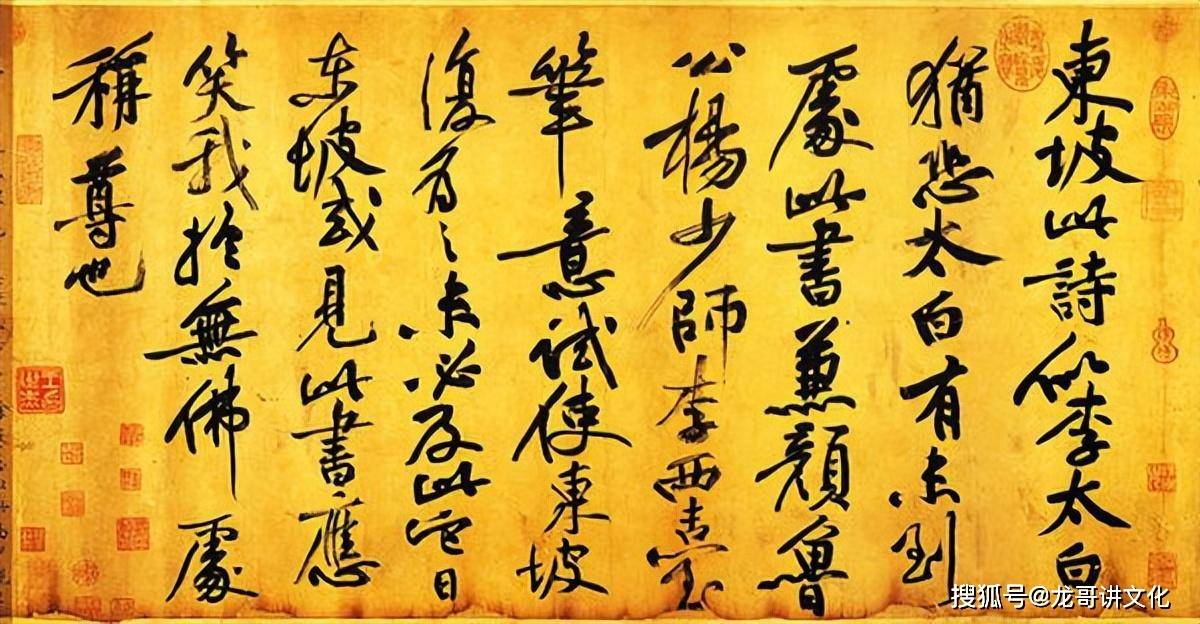 東坡此詩似李太白
猶恐太白有未到
處此書兼顔魯
公楊少師李西臺
筆意試使東坡
復為之未必及此它日
东坡或見此書應
笑我於無佛處
稱尊也
搜狐号@龙哥讲文化